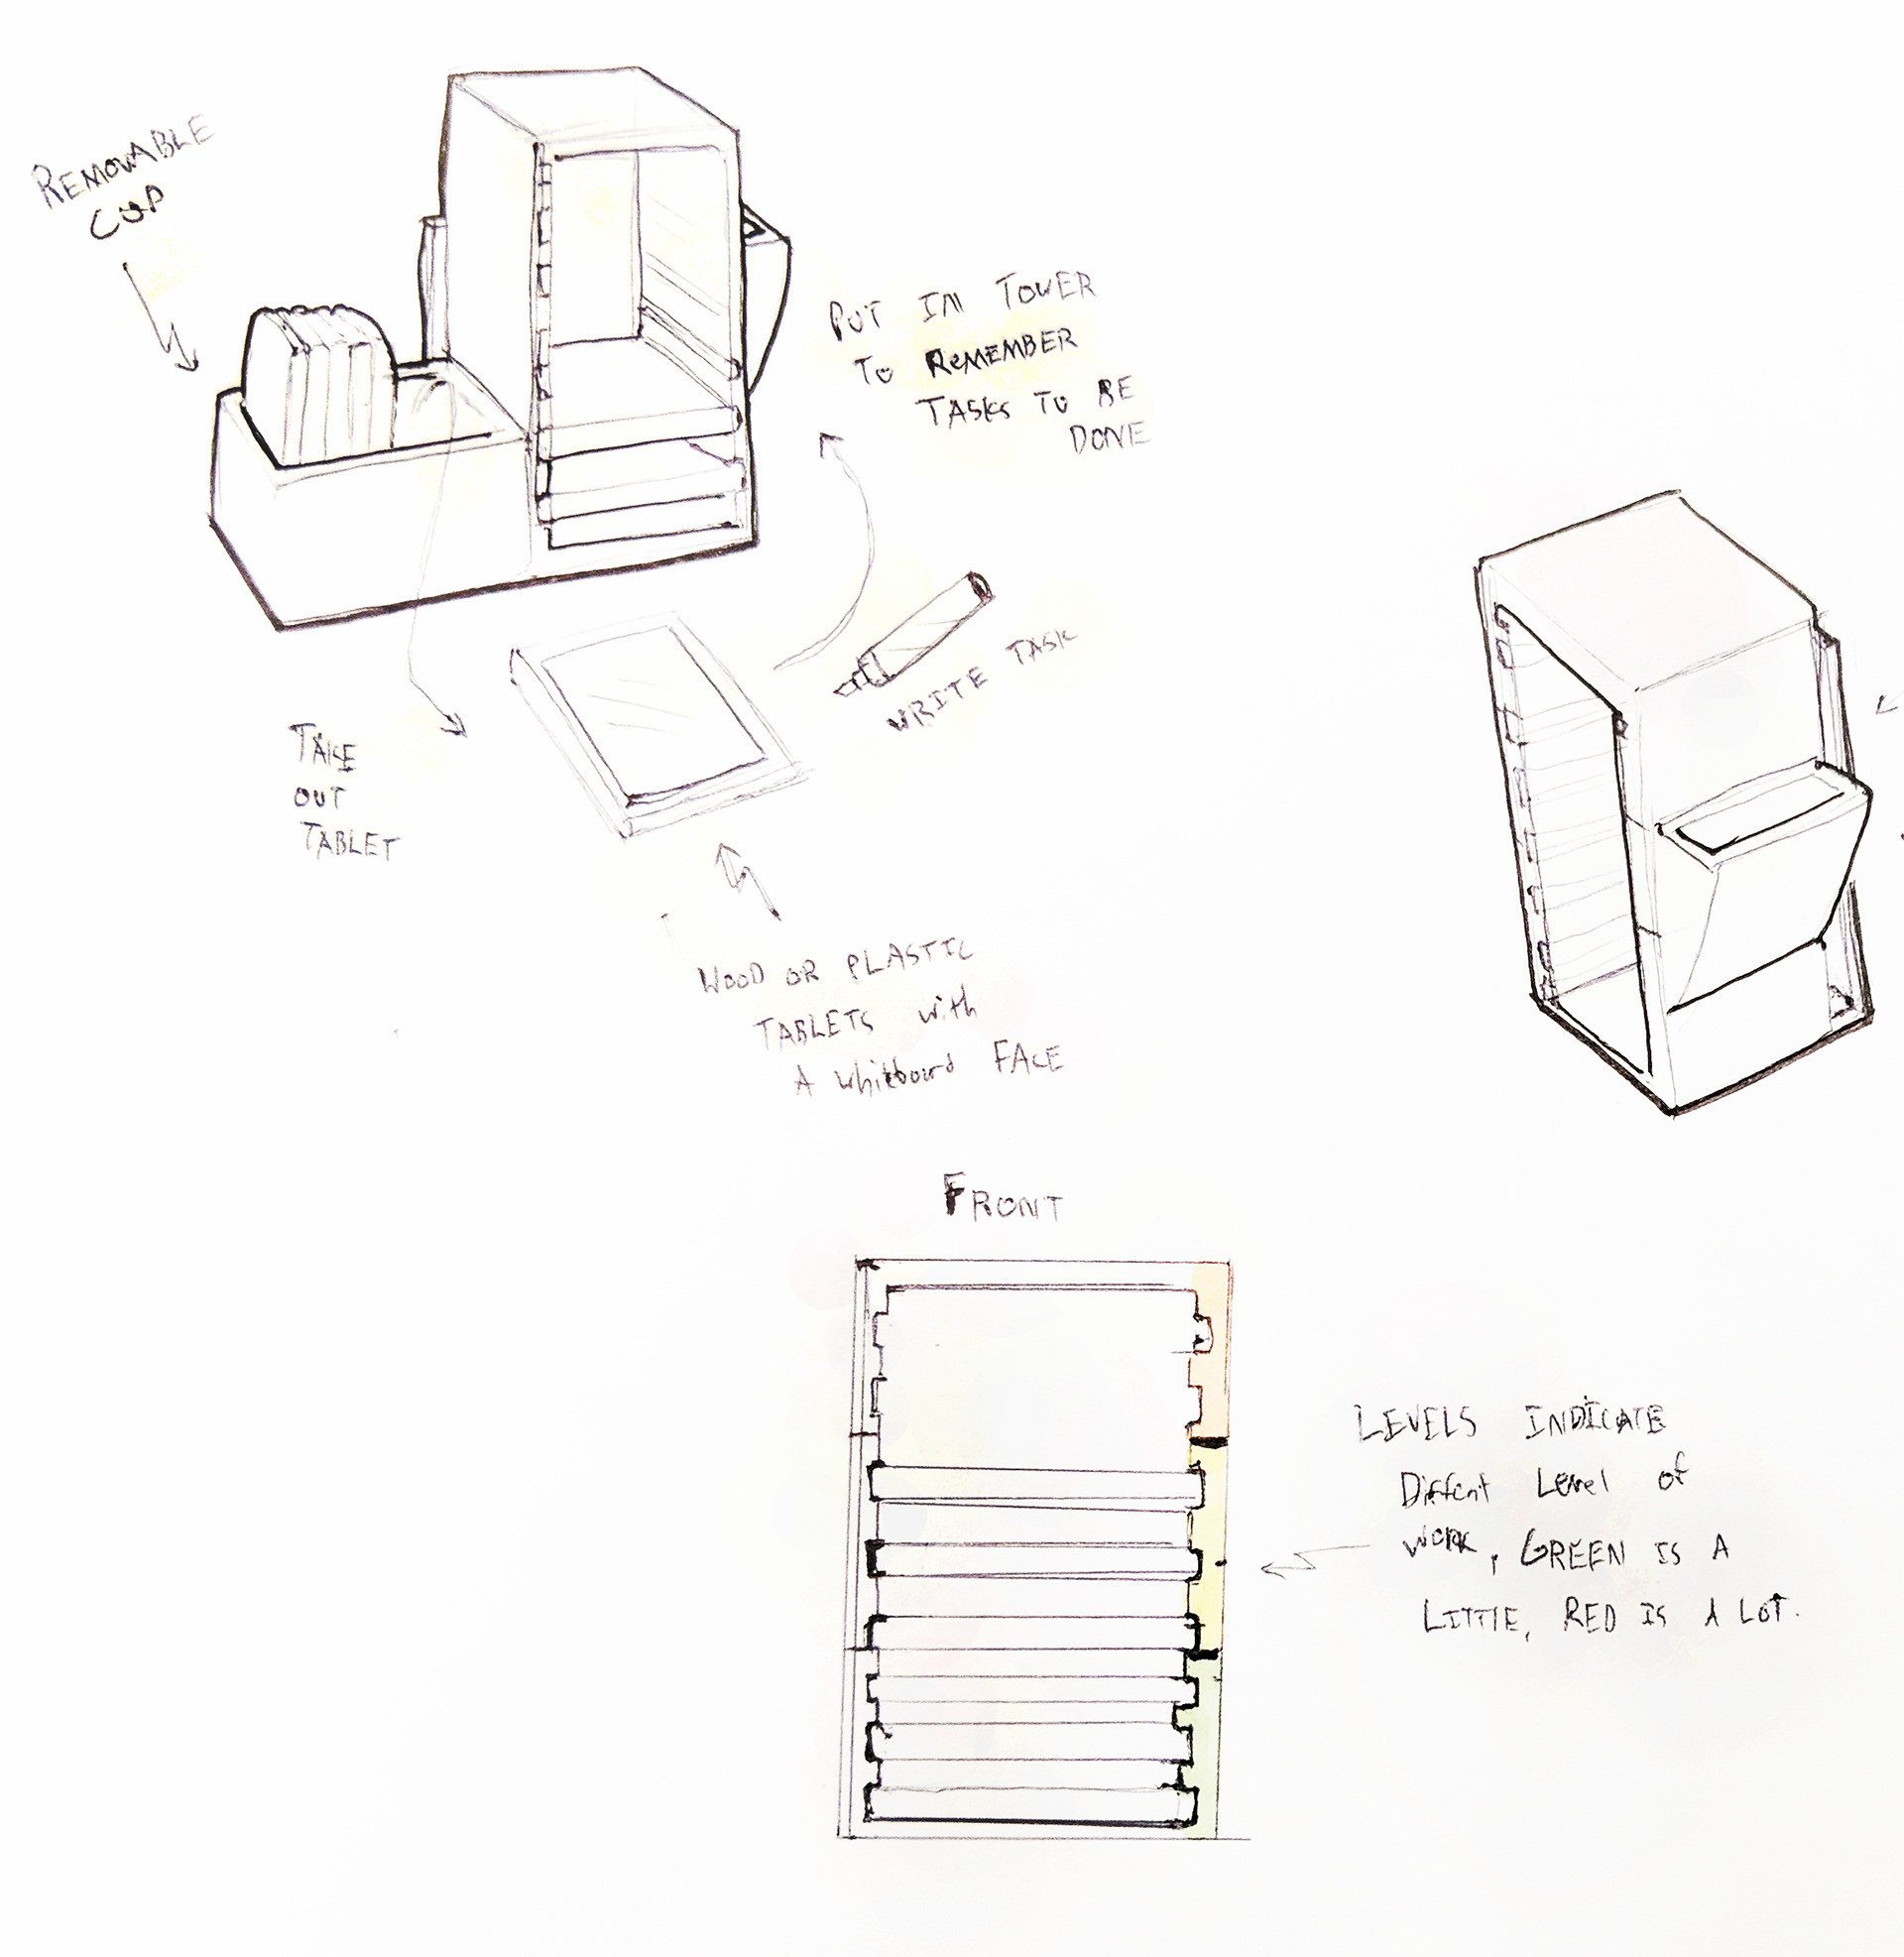 REMOVABLE
CUP
PUT IN TOWER
TO REMEMBER
TASKS TO BE
DONE
WRITE TASK
TAKE
OUT
TABLET
WOOD OR PLASTIC
TABLETS with
A whitboard FACE
FRONT
LEVELS INDICATE
Diffent Level of
WORK, GREEN IS A
LITTLE, RED IS A LOT.